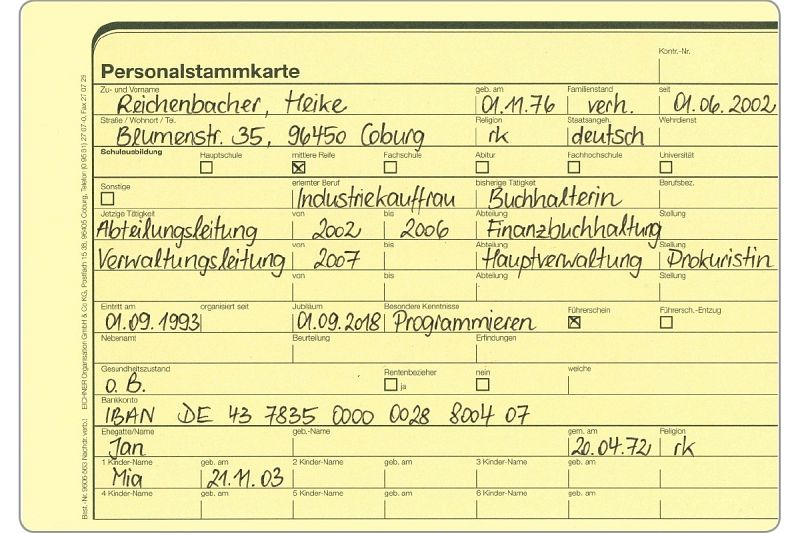 Kontr.-Nr.
Personalstammkarte
Zu- und Vorname geb. am Familienstand seit
Reichenbacher, Heike 01.11.76 verh. 01.06.2002
Straße / Wohnort / Tel. Religion Staatsangeh. Wehrdienst
Blumenstr. 35, 96450 Coburg rk deutsch
Schulausbildung Hauptschule mittlere Reife Fachschule Abitur Fachhochschule Universität
Sonstige erlernter Beruf bisherige Tätigkeit Berufsbez.
Industriekauffrau Buchhalterin
Jetzige Tätigkeit von bis Abteilung Stellung
Abteilungsleitung 2002 2006 Finanzbuchhaltung
von bis Abteilung Stellung
Verwaltungsleitung 2007 Hauptverwaltung Prokuristin
von bis Abteilung Stellung
Eintritt am organisiert seit Jubiläum Besondere Kenntnisse Führerschein Führersch.-Entzug
01.09.1993 01.09.2018 Programmieren
Nebenamt Beurteilung Erfindungen
Gesundheitszustand Rentenbezieher nein welche
o. B. ja
Bankkonto
IBAN DE 43 7835 0000 0028 8004 07
Ehegatte/Name geb.-Name gem. am Religion
Jan 20.04.72 rk
1 Kinder-Name geb. am 2 Kinder-Name geb. am 3 Kinder-Name geb. am
Mia 21.11.03
4 Kinder-Name geb. am 5 Kinder-Name geb. am 6 Kinder-Name geb. am
EICHNER Organisation GmbH & Co KG, Postfach 15 38, 96405 Coburg, Telefon (0 95 61) 27 07-0, Fax 27 07 29